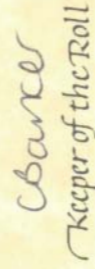 CBarker
Keeper of the Roll